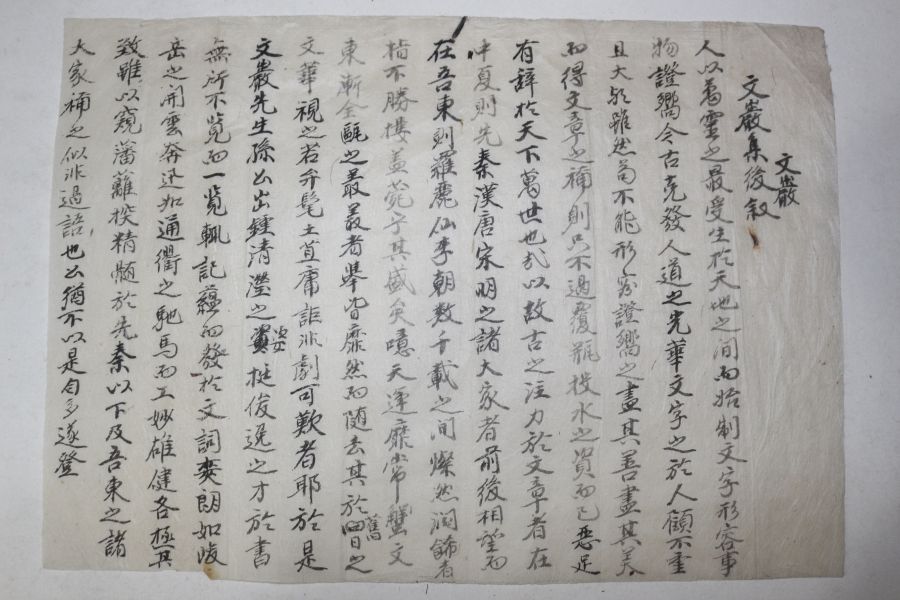 文巖集後敘
文巖
人以萬靈之最受生於天地之間而始制文字形容事
物證嚮今古克發人道之光華文字之於人顧不重
且大歟雖然苟不能形容證嚮之盡其善盡其美
而得文章之補則只不過覆瓿投水之資而已惡足
有辭於天下萬世也哉以故古之注力於文章者在
中夏則先秦漢唐宋明之諸大家者前後相望而
在吾東則羅麗仙李朝数千載之间燦然润飾者
指不勝摟盖菀乎其盛矣噫天運靡常蟹文
東漸全甌之叢叢者舉皆靡然而随去其於舊日之
文華視之若弁髦土苴庸詎非劇可歎者耶於是
文巖先生孫公出鍾清瀅之姿挺俊逸之才於書
無所不覧而一覧輒記蘊而發於文詞奕朗如峻
岳之開雲奔迅如通衢之馳馬而工妙雄健各極其
致雖以窺藩蘺探精髓於先秦以下及吾東之諸
大家補之似非過語也公猶不以是自多遂登